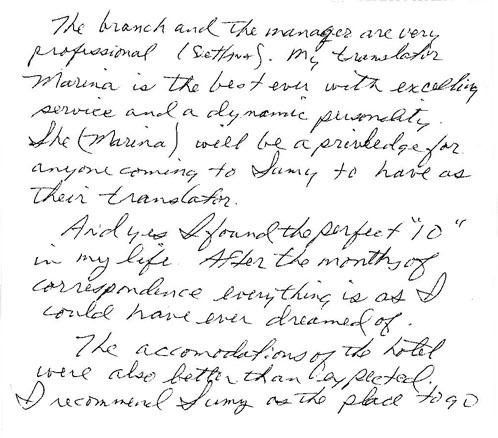 The branch and the manager are very
professional My translator
Marina is the best ever with excelling
service and a dynamic personality.
She (Marina) will be a priviledge for
anyone coming to Sumy to have as
their translator.
And yes I found the perfect "10"
in my life. After the months of
correspondence everything is as I
could have ever dreamed of.
The accomodations of the hotel
were also better than I expected.
I recommend Sumy as the place to go